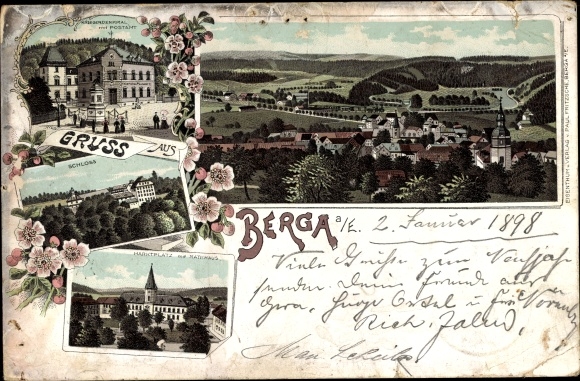 KRIEGERDENKMAL
MIT POSTAMT
GRUSS AUS
SCHLOSS
MARKTPLATZ MIT RATHHAUS
BERGA a/E.
EIGENTHUM u. VERLAG v. PAUL FRITZSCHE, BERGA a/E.
2. Januar 1898
Viele Grüße zum Neujahr
senden Deine Freunde aus
Gera, Hugo u
Rich.